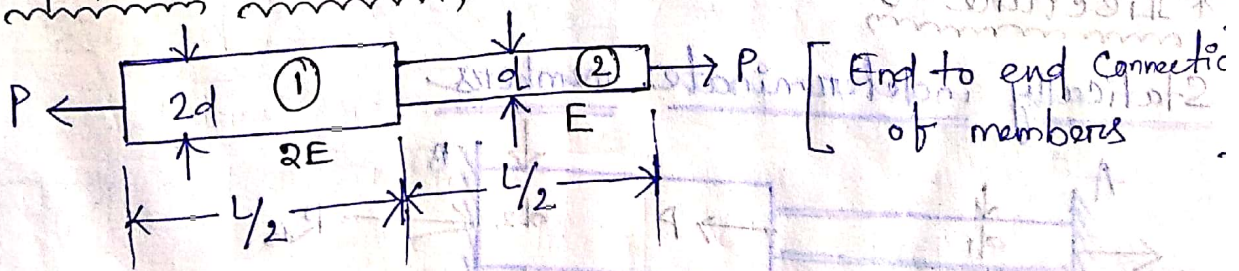 P 2d ① d ② P [ End to end Connectio
2E E of members
L/2 L/2